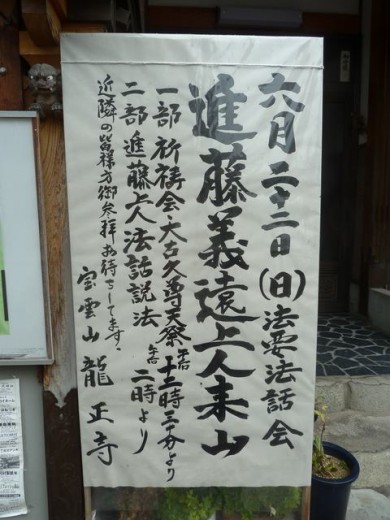 六月二十二日(日)法要法話会
進藤義遠上人来山
一部 祈祷会・大古久尊天祭 午后十二時三十分より
二部 進藤上人法話説法 午后二時より
近隣の皆様方御参拝お待ちしてます。
宝雲山 龍正寺